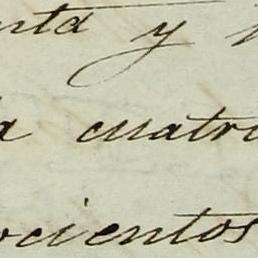 nta y
a cuatro
ocientos